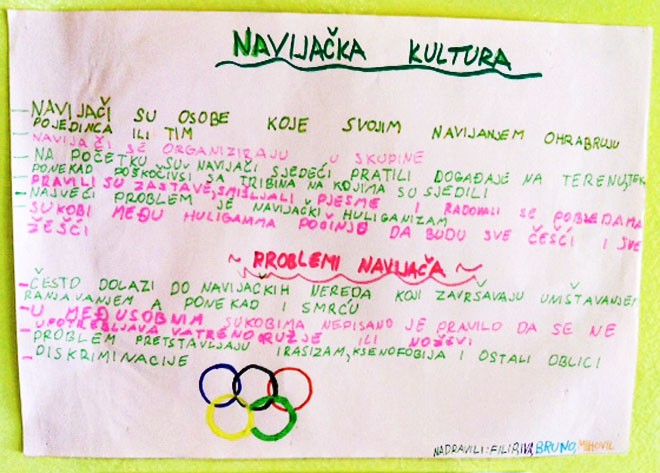 NAVIJAČKA KULTURA
- NAVIJAČI SU OSOBE KOJE SVOJIM NAVIJANJEM OHRABRUJU
POJEDINCA ILI TIM
NAVIJAČI SE ORGANIZIRAJU U SKUPINE
- NA POČETKU SU NAVIJAČI SJEDEĆI PRATILI DOGAĐAJE NA TERENU, TEK
PONEKAD POSKOČIVSI SA TRIBINA NA KOJIMA SU SJEDILI
- PRAVILI SU ZASTAVE, SMIŠLJALI PJESME I RADOVALI SE POBJEDAMA
- NAJVEĆI PROBLEM JE NAVIJAČKI HULIGANIZAM
SUKOBI MEĐU HULIGAMMA POČINJE DA BUDU SVE ČEŠĆI I SVE
ŽEŠĆI
~ PROBLEMI NAVIJAČA ~
- ČESTO DOLAZI DO NAVIJAČKIH NEREDA KOJI ZAVRŠAVAJU UNIŠTAVANJEM
RANJAVANJEM A PONEKAD I SMRĆU
- U MEĐUSOBNIM SUKOBIMA NEPISANO JE PRAVILO DA SE NE
UPOTREBLJAVA VATRENO ORUŽJE ILI NOŽEVI
- PROBLEM PRETSTAVLJAJU I RASIZAM, KSENOFOBIJA I OSTALI OBLICI
- DISKRIMINACIJE
NADRAVILI: FILIP, IVA, BRUNO, MIHOVIL